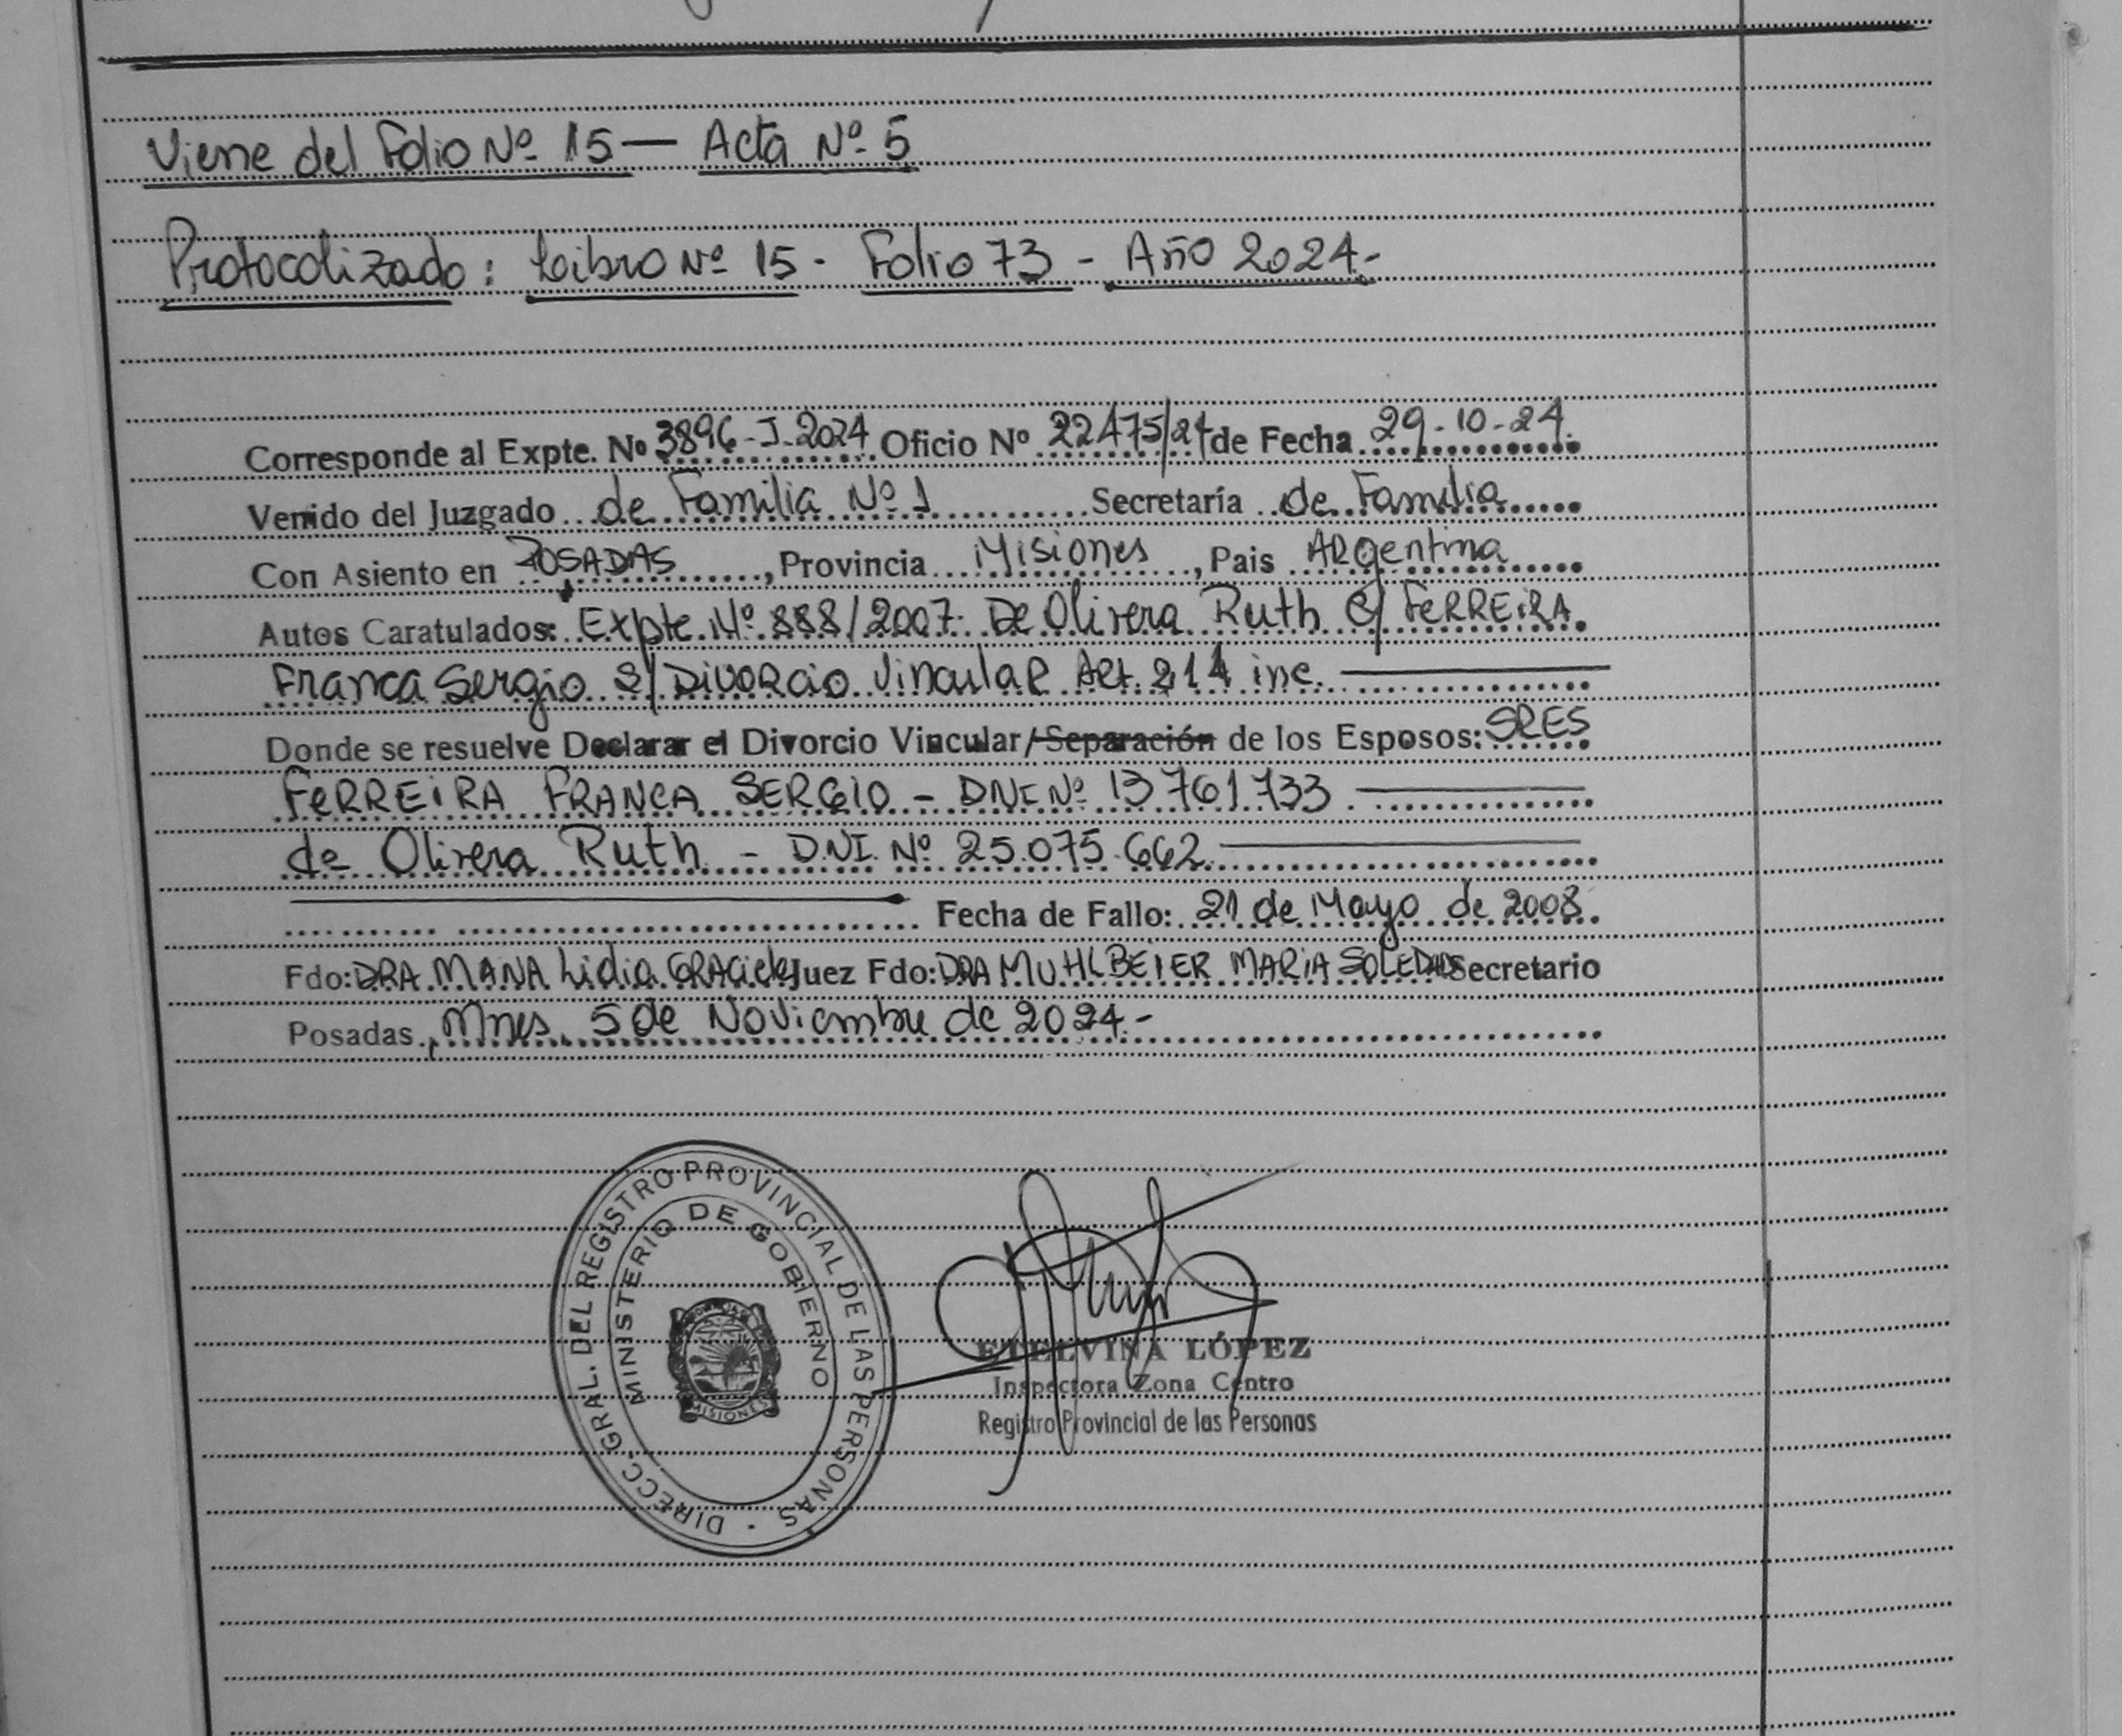 Viene del Folio Nº 15 — Acta Nº 5
Protocolizado: Libro Nº 15 - Folio 73 - Año 2024.-
Corresponde al Expte. Nº 3896-J-2024 Oficio Nº 22475/24 de Fecha 29-10-24.
Venido del Juzgado de Familia Nº 1 Secretaría de Familia
Con Asiento en POSADAS, Provincia Misiones, Pais ARgentina
Autos Caratulados: Expte. Nº 888/2007. De Olivera Ruth C/ FeRREiRA
Franca Sergio S/ Divorcio Vincular Art. 214 inc.
Donde se resuelve Declarar el Divorcio Vincular/Separación de los Esposos: SRES
FeRREiRA FRANCA SERGIO - DNI Nº 13 761.733.
de Olivera Ruth - D.NI. Nº 25.075.662
Fecha de Fallo: 21 de Mayo de 2008.
Fdo: DRA. MANA Lidia GRAciela Juez Fdo: DRA MUHLBEIER MARiA SOLEDAD Secretario
Posadas, Mnes, 5 de Noviembre de 2024.-
DIRECC. GRAL. DEL REGISTRO PROVINCIAL DE LAS PERSONAS
MINISTERIO DE GOBIERNO
MISIONES
ETELVINA LÓPEZ
Inspectora Zona Centro
Registro Provincial de las Personas